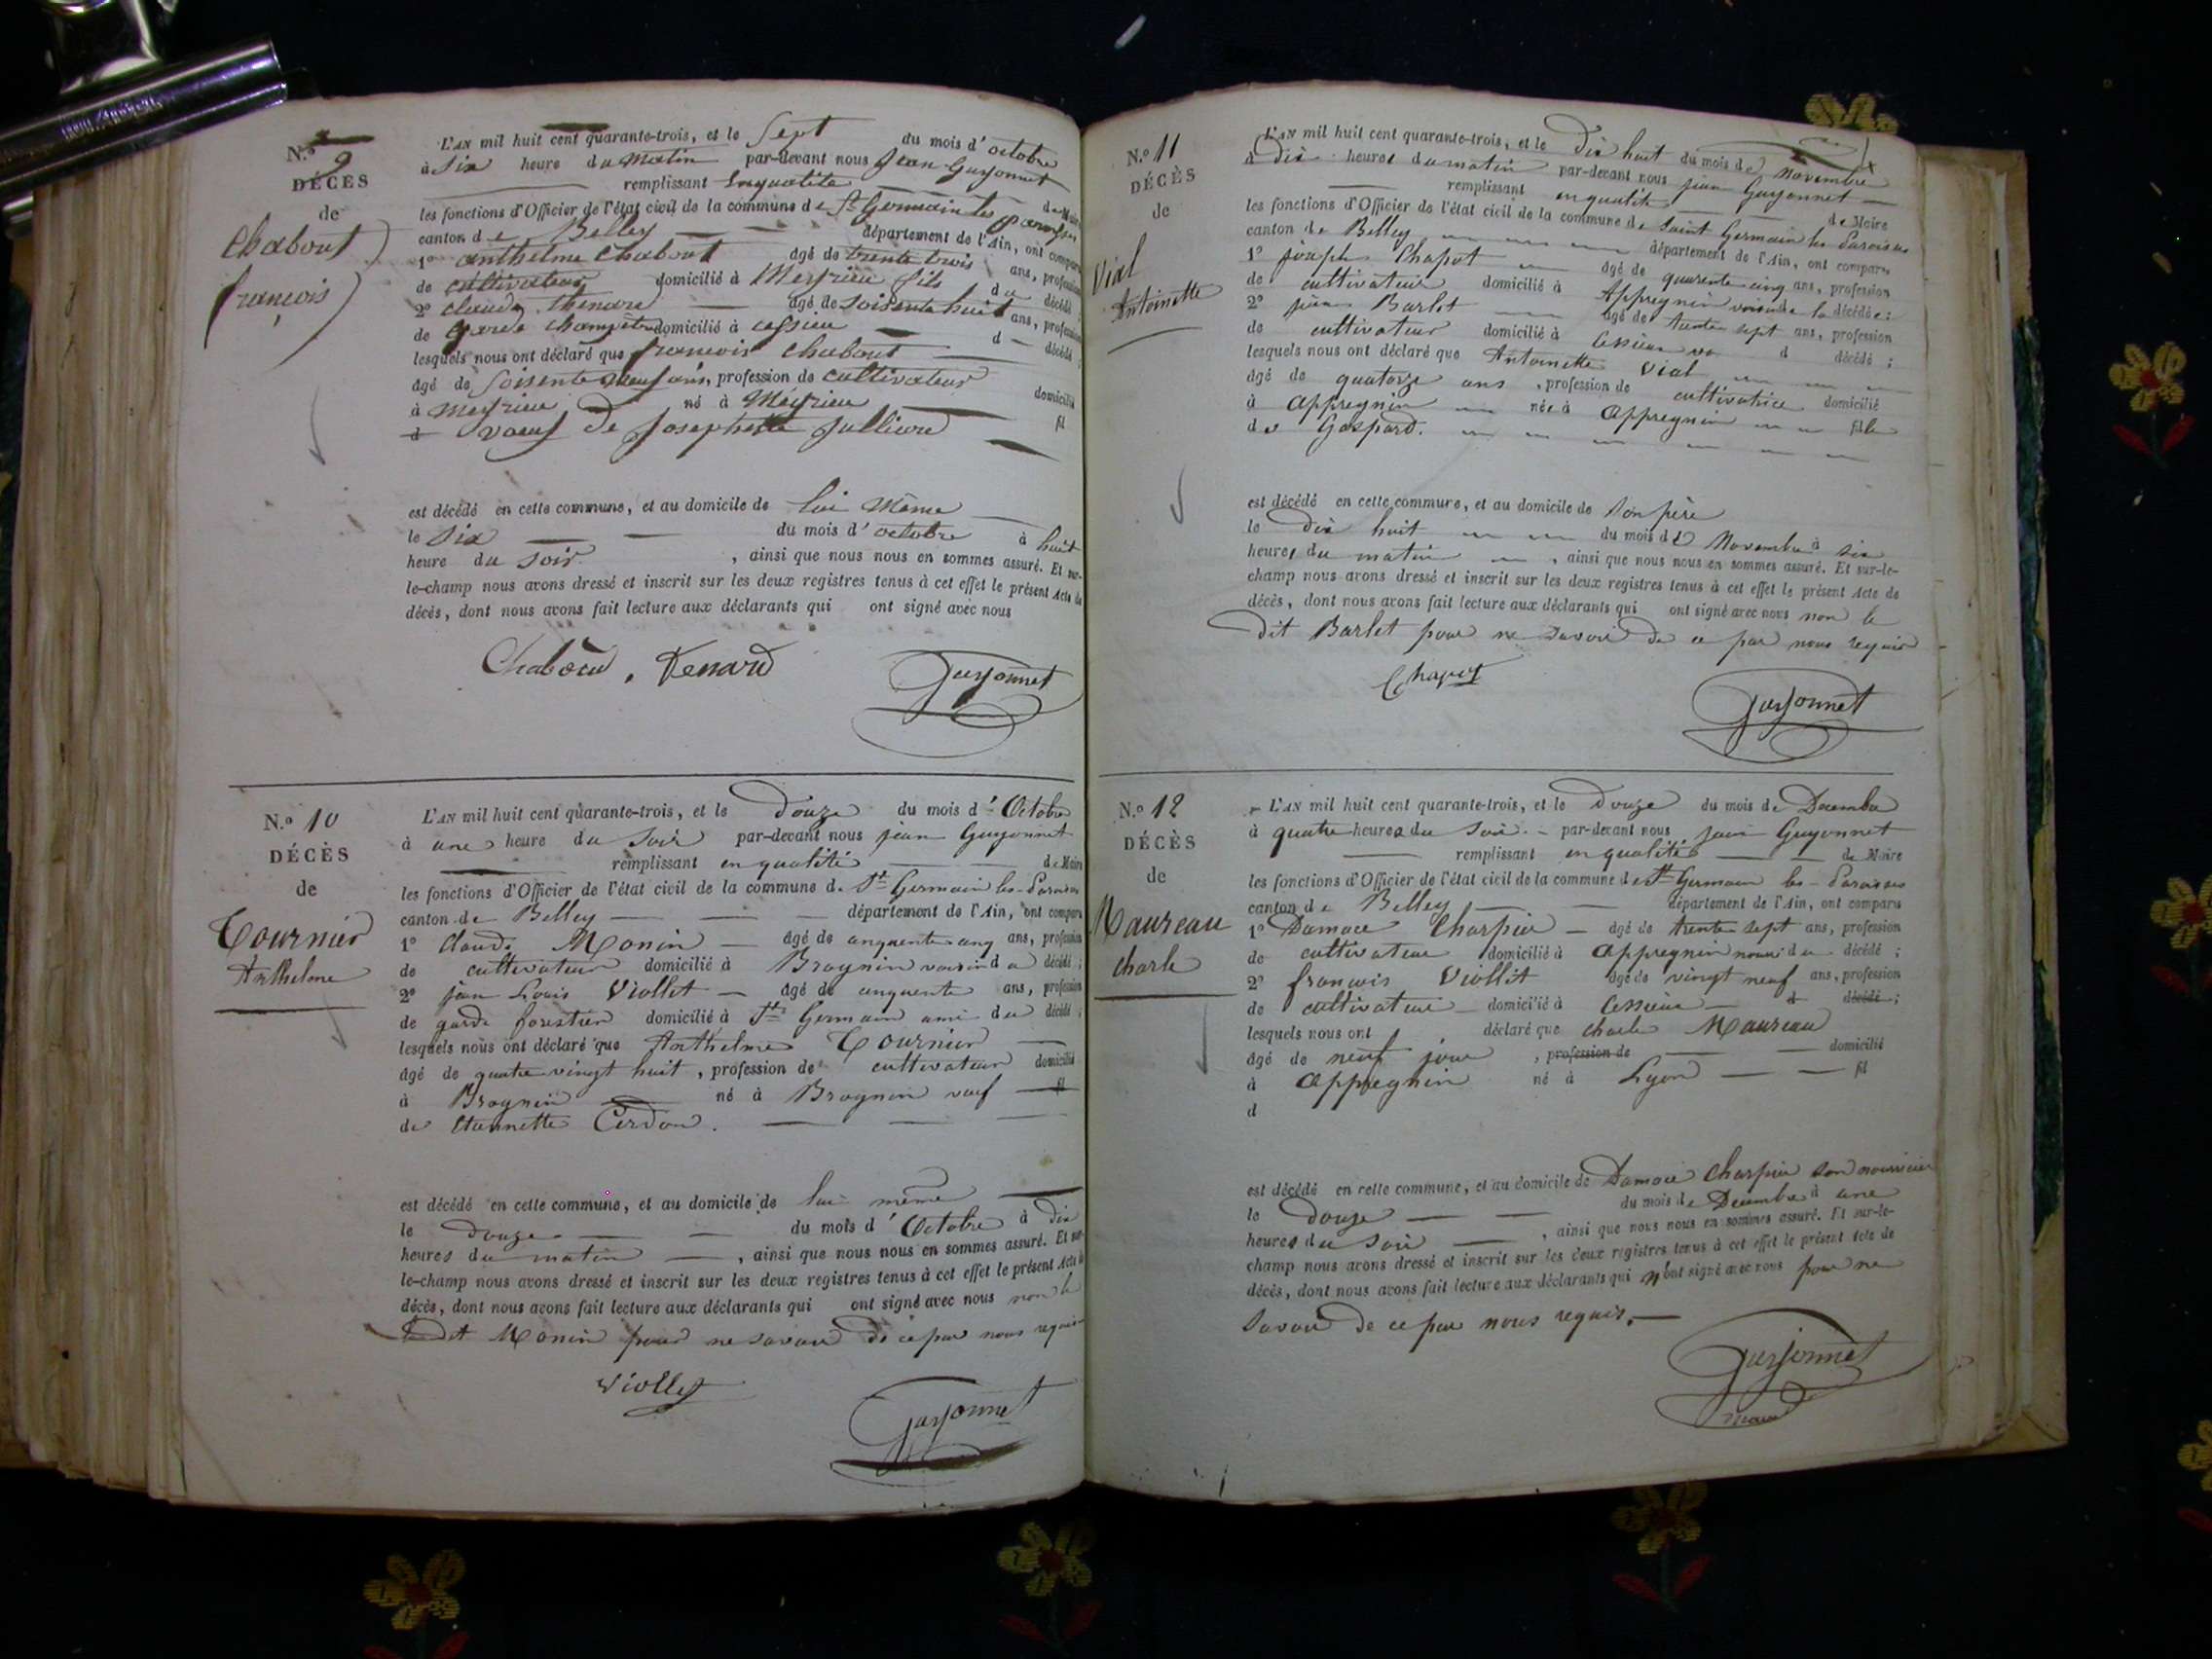 N.o 9
DÉCÈS
de
Chabout
françois
L'AN mil huit cent quarante-trois, et le Sept du mois d'octobre
à Six heure du Matin par-devant nous Jean Guyonnet
remplissant Enqualité de Maire
les fonctions d'Officier de l'état civil de la commune de St Germain les paroisses
canton de Belley département de l'Ain, ont comparu
1o anthelme Chabout âgé de trente trois ans, profession
de cultivateur domicilié à Meyrieu fils du décédé ;
2o claude thenard âgé de Soisente huit ans, profession
de garde champêtre domicilié à cessieu d décédé ;
lesquels nous ont déclaré que françois Chabout
âgé de Soisente Neuf ans, profession de cultivateur domicilié
à Meyrieu né à Meyrieu fil
d voeuf De Josephete Jullien
est décédé en cette commune, et au domicile de lui Même
le Six du mois d'octobre à huit
heure du Soir , ainsi que nous nous en sommes assuré. Et sur-
le-champ nous avons dressé et inscrit sur les deux registres tenus à cet effet le présent Acte de
décès, dont nous avons fait lecture aux déclarants qui ont signé avec nous
Guyonnet
N.o 10
DÉCÈS
de
Tournier
Anthelme
L'AN mil huit cent quarante-trois, et le Douze du mois d'Octobre
à une heure du Soir par-devant nous jean Guyonnet
remplissant en qualité de Maire
les fonctions d'Officier de l'état civil de la commune de St Germain les Paroisses
canton de Belley département de l'Ain, ont comparu
1o claude Monin âgé de cinquente cinq ans, profession
de cultivateur domicilié à Brognin voisin du décédé ;
2o jean Louis Viollet âgé de cinquente ans, profession
de garde forestier domicilié à St Germain ami du décédé ;
lesquels nous ont déclaré que Anthelme Tournier
âgé de quatre vingt huit , profession de cultivateur domicilié
à Brognin né à Brognin veuf fil
de Etiennette Cerdon.
est décédé en cette commune, et au domicile de lui même
le Douze du mois d'Octobre à Dix
heures du matin , ainsi que nous nous en sommes assuré. Et sur-
le-champ nous avons dressé et inscrit sur les deux registres tenus à cet effet le présent Acte de
décès, dont nous avons fait lecture aux déclarants qui ont signé avec nous non le
dit Monin pour ne savoir de ce par nous requis
Viollet
Guyonnet
N.o 11
DÉCÈS
de
Vial
Antoinette
L'AN mil huit cent quarante-trois, et le Dix huit du mois de Novembre
à Dix heures du matin par-devant nous jean Guyonnet
remplissant en qualité de Maire
les fonctions d'Officier de l'état civil de la commune de Saint Germain les Paroisses
canton de Belley département de l'Ain, ont comparu
1o joseph Chapot âgé de quarente cinq ans, profession
de cultivateur domicilié à Appregnin voisin de la décédée ;
2o jean Barlet âgé de trente sept ans, profession
de cultivateur domicilié à Cessieu d décédé ;
lesquels nous ont déclaré que Antoinette Vial
âgé de quatorze ans , profession de cultivatrice domicilié
à Appregnin née à Appregnin fille
de Gaspard.
est décédé en cette commune, et au domicile de Son père
le Dix huit du mois de Novembre à six
heures du matin , ainsi que nous nous en sommes assuré. Et sur-le-
champ nous avons dressé et inscrit sur les deux registres tenus à cet effet le présent Acte de
décès, dont nous avons fait lecture aux déclarants qui ont signé avec nous non le
dit Barlet pour ne savoir de ce par nous requis
Chapot
Guyonnet
N.o 12
DÉCÈS
de
Maureau
charle
L'AN mil huit cent quarante-trois, et le Douze du mois de Decembre
à quatre heures du Soir par-devant nous jean Guyonnet
remplissant en qualité de Maire
les fonctions d'Officier de l'état civil de la commune de St Germain les Paroisses
canton de Belley département de l'Ain, ont comparu
1o Damace Charpin âgé de trente sept ans, profession
de cultivateur domicilié à Appregnin du décédé ;
2o françois Viollet âgé de vingt neuf ans, profession
de cultivateur domicilié à Cessieu d décédé ;
lesquels nous ont déclaré que charle Maureau
âgé de neuf jour , profession de domicilié
à Appregnin né à Lyon fil
d
est décédé en cette commune, et au domicile de Damace Charpin son nourricier
le Douze du mois de Decembre à une
heures du Soir , ainsi que nous nous en sommes assuré. Et sur-le-
champ nous avons dressé et inscrit sur les deux registres tenus à cet effet le présent Acte de
décès, dont nous avons fait lecture aux déclarants qui n'ont signé avec nous pour ne
Savoir de ce par nous requis.
Guyonnet